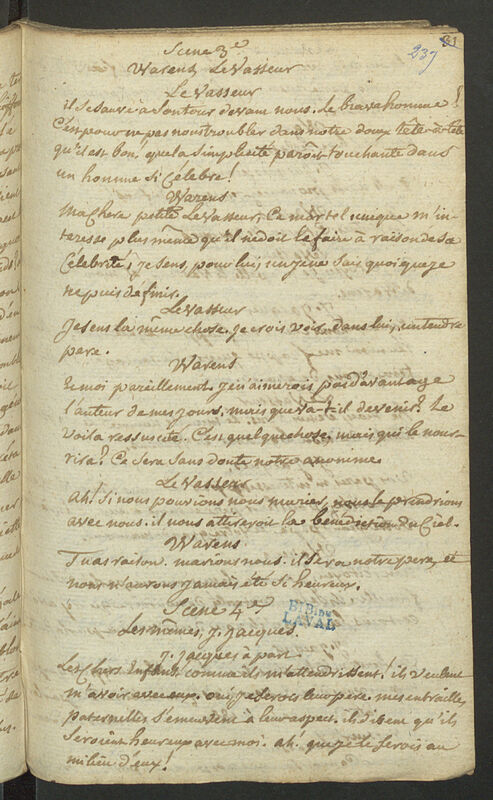 237
Scene 3e
Warens, Le Vasseur
Le Vasseur
il se sauve a l'entour devant nous. le brave homme!
C'est pour ne pas nous troubler dans notre doux tête-à-tête
qu'il est bon! que la simplicité paroît touchante dans
un homme si Celebre!
Warens
Ma Chere petite Le Vasseur, Ce mortel unique m'in-
teresse plus même qu'il ne doit le faire à raison de sa
Célebrité, je sens, pour lui, un je ne sais quoi que je
ne puis definir.
Le Vasseur
Je sens la même chose. je crois voir, dans lui, un tendre
pere.
Warens
Et moi pareillement. je n'aimerois pas d'avantage
l'auteur de mes jours, mais que va-t-il devenir? Le
voila ressuscité. C'est quelque chose. mais qui le nour-
rira? Ce sera sans doute notre anonime.
Le Vasseur
Ah! Si nous pouvions nous marier, nous le prendrions
avec nous. il nous attireroit la bénédiction du Ciel.
Warens
Tu as raison. marions nous. il sera notre pere, et
nous n'aurons jamais été si heureux.
Scene 4e
BIB. DE
LAVAL
Les mêmes, J. Jacques.
J. Jacques à part.
Les Chers Enfans comme ils m'attendrissent! ils veulent
m'avoir avec eux. oui je serois leur pere. mes entrailles
paternelles s'émeuvent à leur aspect. ils disent qu'ils
seroient heureux avec moi. ah! que je le serois au
milieu d'eux!